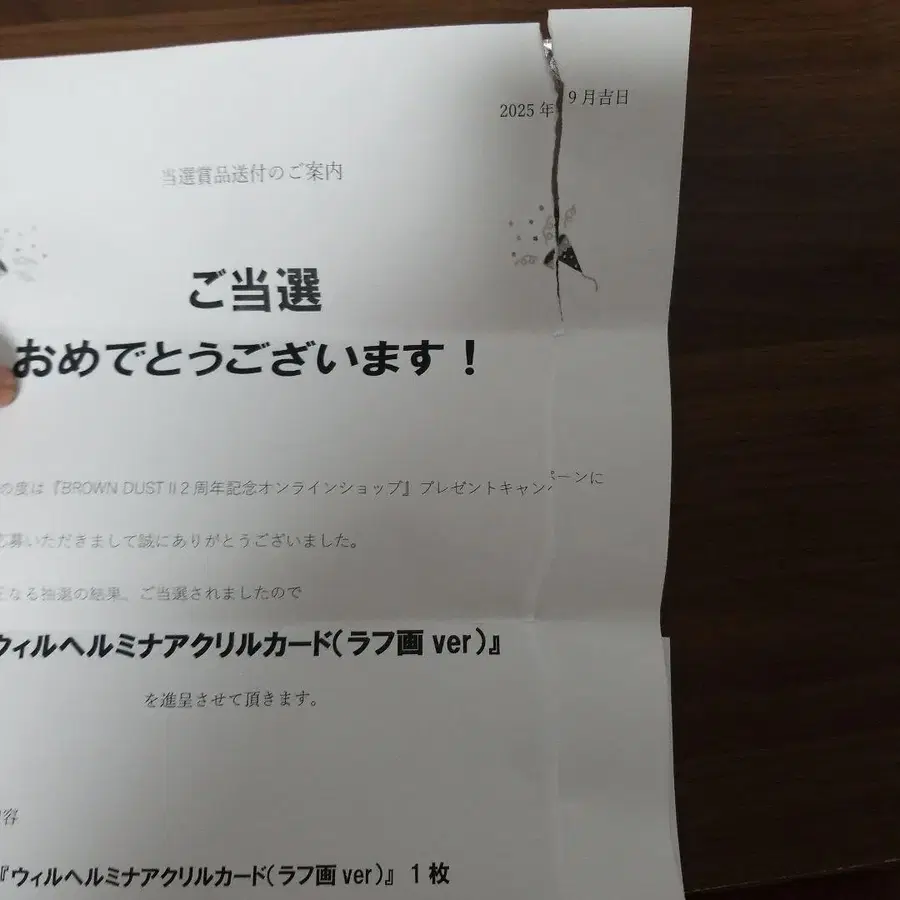 2025年9月吉日
当選賞品送付のご案内
ご当選
おめでとうございます！
の度は『BROWN DUST II 2周年記念オンラインショップ』プレゼントキャンペーンに
応募いただきまして誠にありがとうございました。
なる抽選の結果、ご当選されましたので
ウィルヘルミナアクリルカード（ラフ画 ver）』
を進呈させて頂きます。
容
『ウィルヘルミナアクリルカード（ラフ画 ver）』 1 枚